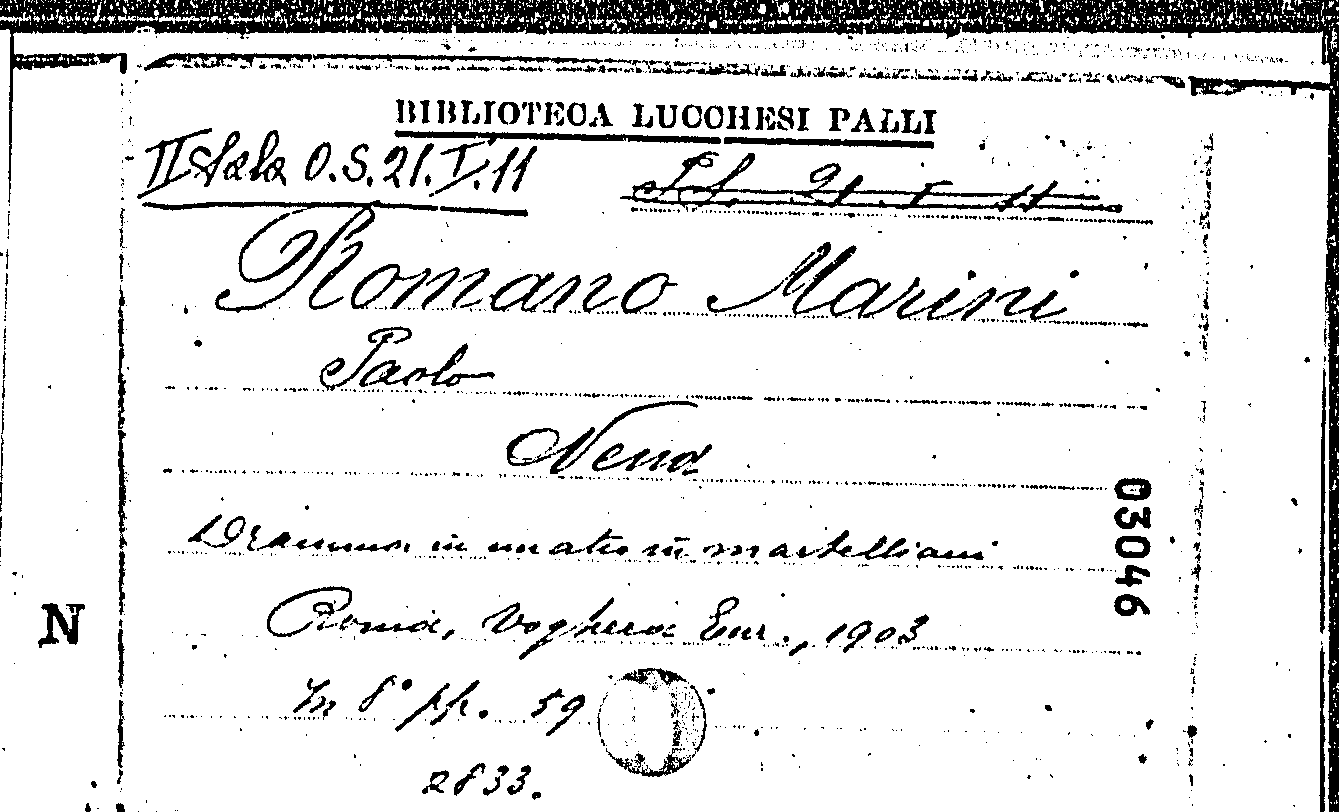 BIBLIOTECA LUCCHESI PALLI
II Sala O.S.21.I.11
21. I 11
Romano Marini
Paolo
Nena
Dramma in un atto in martelliani
Roma, Voghera Enr., 1903
In 8° pp. 59
2833.
N
03046